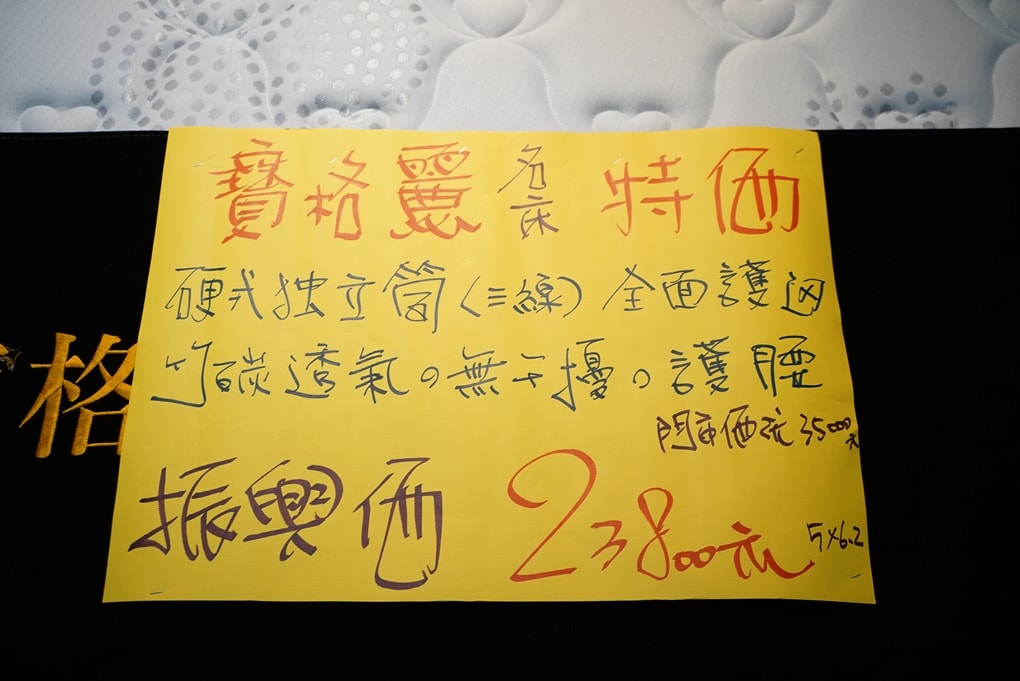 寶格麗名床 特価
硬式独立筒(三線)全面護边
竹碳透氣。無干擾。護腰
門市価流35000元
振興価 23800元
5×6.2
格